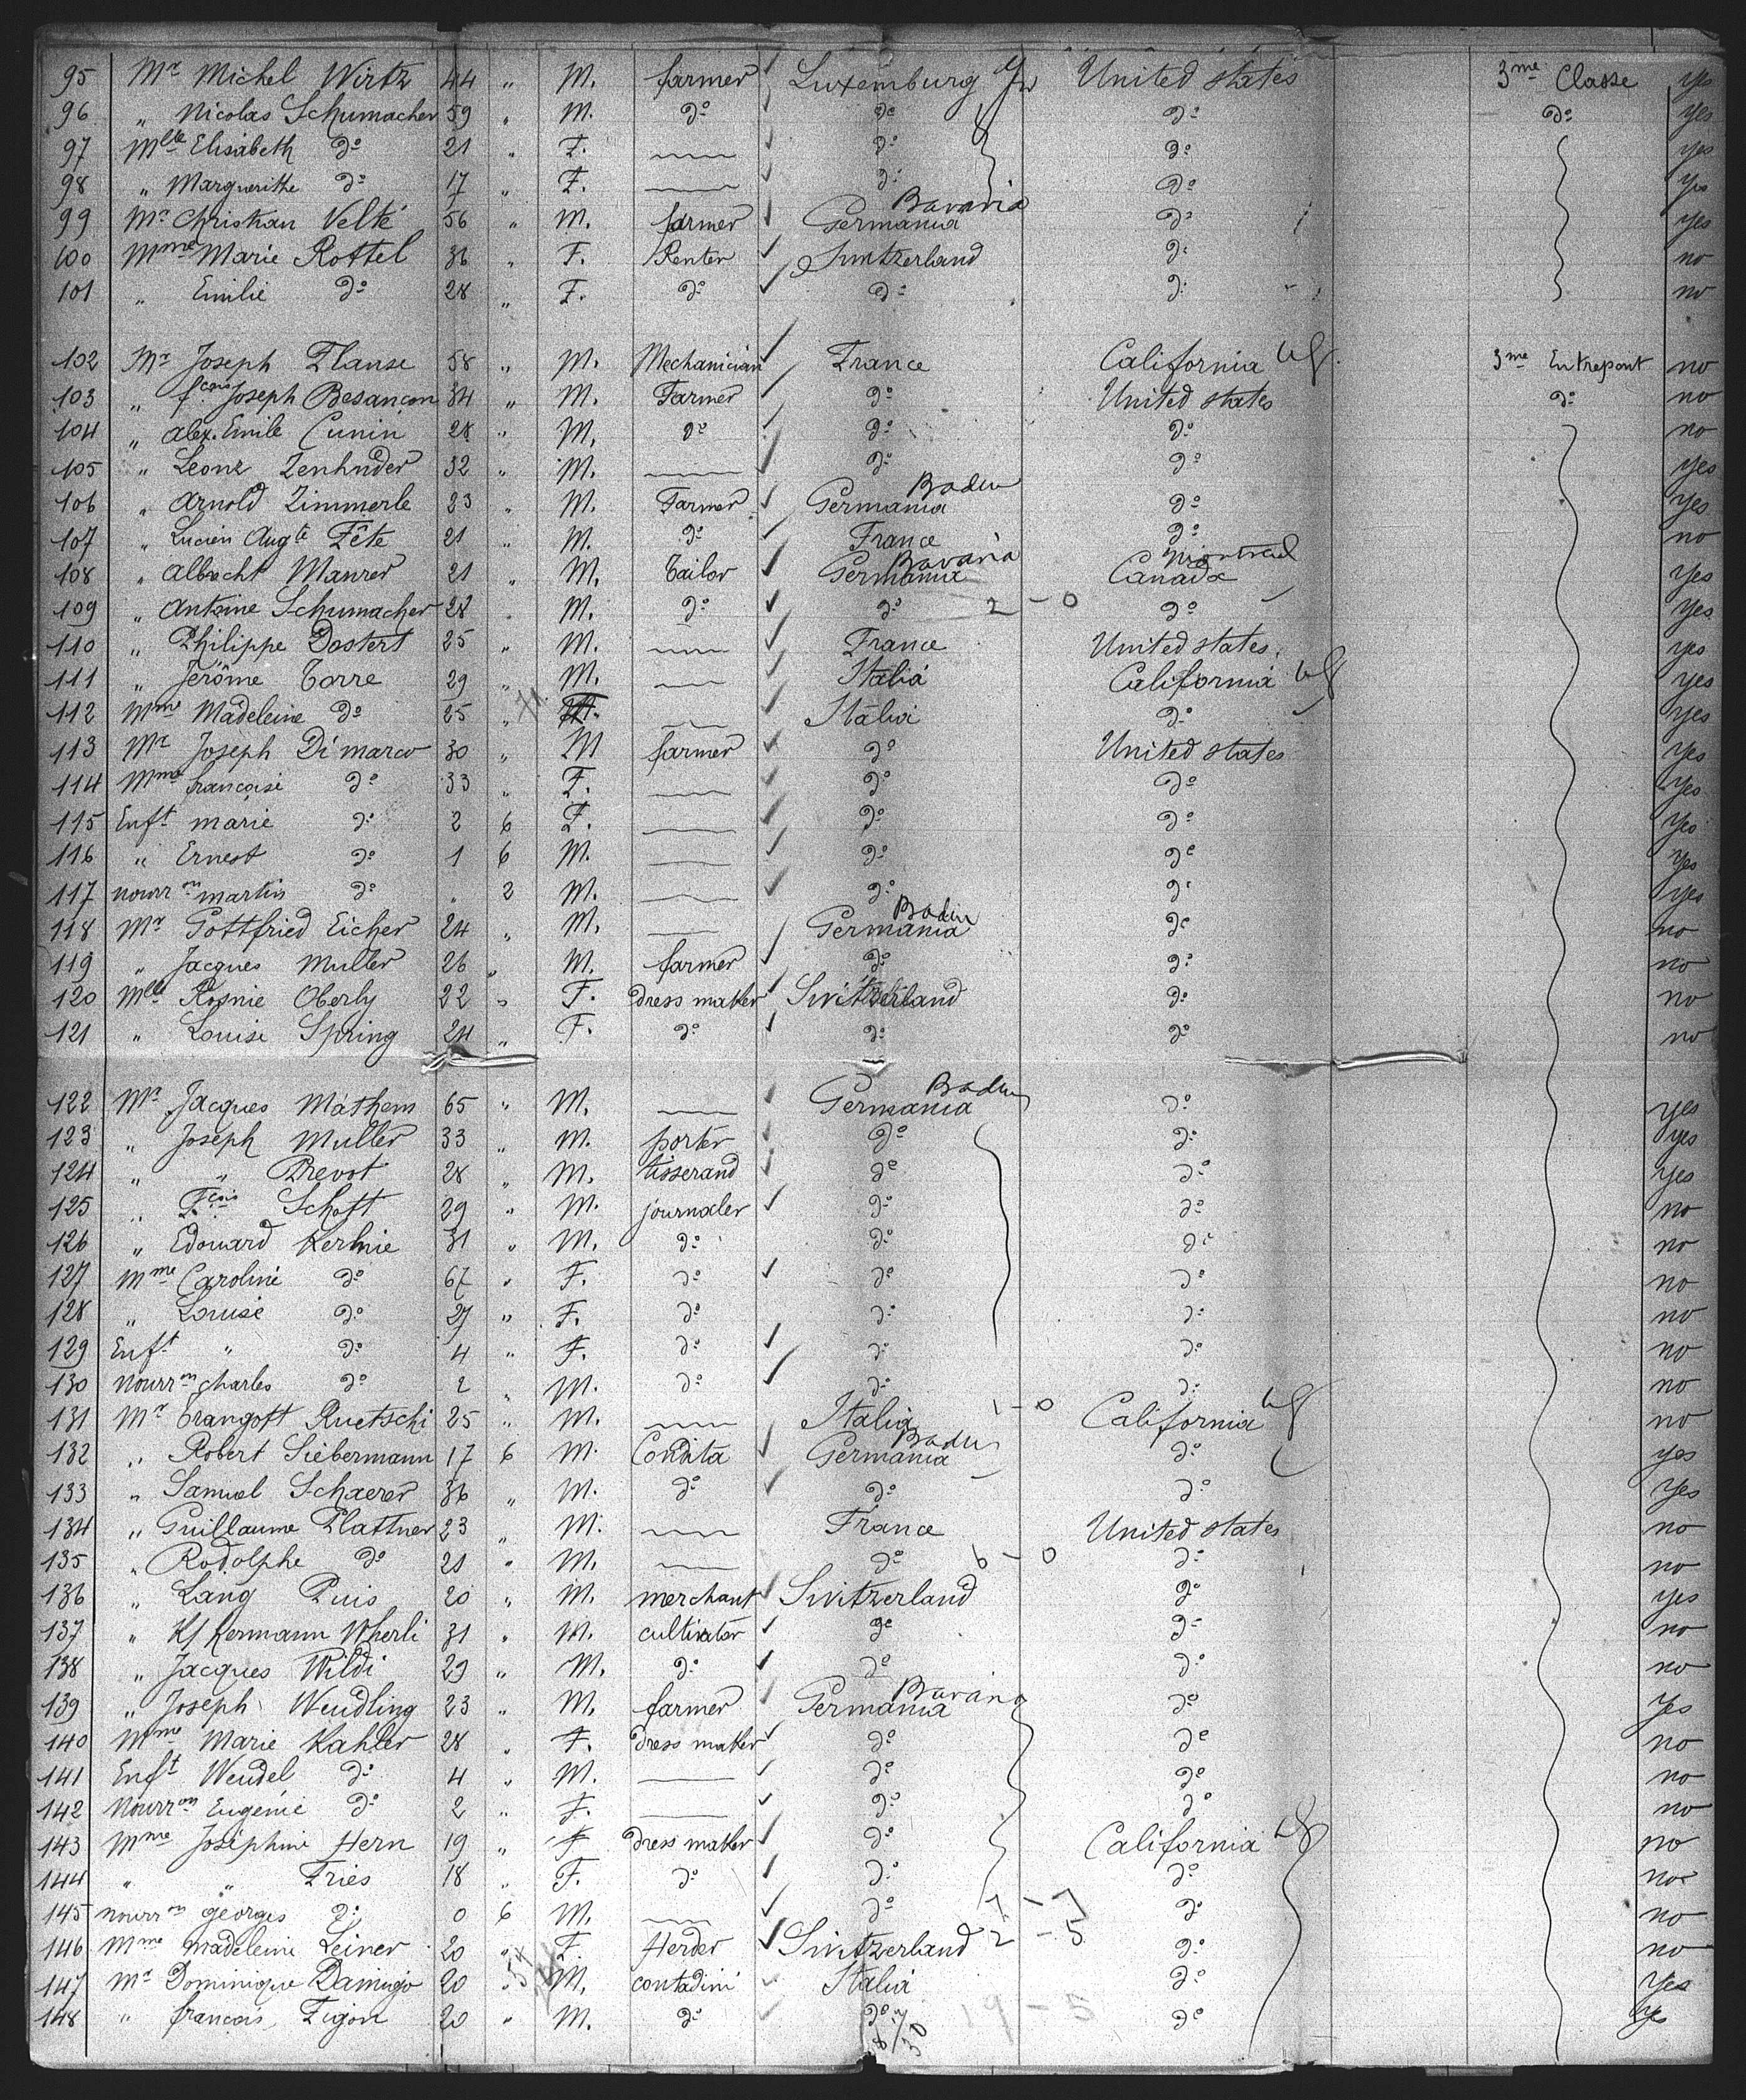 95 Mr Michel Wirtz 44 „ M. farmer Luxemburg United states 3me Classe yes
96 „ Nicolas Schumacher 59 „ M. do do do do yes
97 Mlle Elisabeth do 21 „ F. do do yes
98 „ Marguerithe do 17 „ F. do do yes
99 Mr Christian Velté 56 „ M. farmer Germania Bavaria do yes
100 Mme Marie Rottel 36 „ F. Renter Switzerland do no
101 „ Emilie do 28 „ F. do do do no
102 Mr Joseph Flanse 58 „ M. Mechanician France California 3me Entrepont no
103 „ fcois Joseph Besançon 34 „ M. Farmer do United states do no
104 „ Alex. Emile Cunin 28 „ M. do do do no
105 „ Leonz Zenhnder 32 „ M. do do yes
106 „ Arnold Zimmerle 23 „ M. Farmer Germania Baden do yes
107 „ Lucien Augte Fête 21 „ M. do France do no
108 „ Albrecht Maurer 21 „ M. Tailor Germania Bavaria Canada Montreal yes
109 „ Antoine Schumacher 28 „ M. do do 2 - 0 do yes
110 „ Philippe Dostert 25 „ M. France United states. yes
111 „ Jérôme Torre 29 „ M. Italia California yes
112 Mme Madeleine do 25 „ Italia do yes
113 Mr Joseph Di marco 30 „ M farmer do United states yes
114 Mme francoise do 33 „ F. do do yes
115 Enft marie do 2 6 F. do do yes
116 „ Ernest do 1 6 M. do do yes
117 nourron martin do „ 2 M. do do yes
118 Mr Gottfried Eicher 24 „ M. Germania Baden do no
119 „ Jacques Muller 26 „ M. farmer do do no
120 Mlle Rosnie Oberly 22 „ F. dress maker Switzerland do no
121 „ Louise Spring 24 „ F. do do do no
122 Mr Jacques Mathern 65 „ M. Germania Baden do yes
123 „ Joseph Muller 33 „ M. porter do do yes
124 „ „ Prevot 28 „ M. tisserand do do yes
125 „ Fcois Schott 29 „ M. journaler do do no
126 „ Edouard Kerhnie 31 „ M. do do do no
127 Mme Caroline do 67 „ F. do do do no
128 „ Louise do 27 „ F. do do do no
129 Enft „ do 4 „ F. do do do no
130 nourron charles do 2 „ M. do do do no
131 Mr Trangott Ruetschi 25 „ M. Italia 1 - 0 California no
132 „ Robert Siebermann 17 6 M. Condita Germania Baden do yes
133 „ Samuel Schaerer 36 „ M. do do do yes
134 „ Guillaume Plattner 23 „ M. France United states no
135 „ Rodolphe do 21 „ M. do 6 - 0 do no
136 „ Lang Puis 20 „ M. merchant Switzerland do yes
137 „ Kl Hermann Wherli 31 „ M. cultivator do do no
138 „ Jacques Wildi 29 „ M. do do do no
139 „ Joseph Wendling 23 „ M. farmer Germania Bavaria do yes
140 Mme Marie Kahler 28 „ F. dress maker do do no
141 Enft Wendel do 4 „ M. do do no
142 nourron Eugénie do 2 „ F. do do no
143 Mme Joséphine Hern 19 „ F dress maker do California no
144 „ „ Fries 18 „ F. do do do no
145 nourron georges do 0 6 M. do 7 - 7 do no
146 Mme madeleine Leiner 20 „ F. Herder Switzerland 2 - 5 do no
147 Mr Dominique Damingo 20 „ M. contadini Italia do yes
148 „ francois Figon 20 „ M. do do 19 - 5 do yes